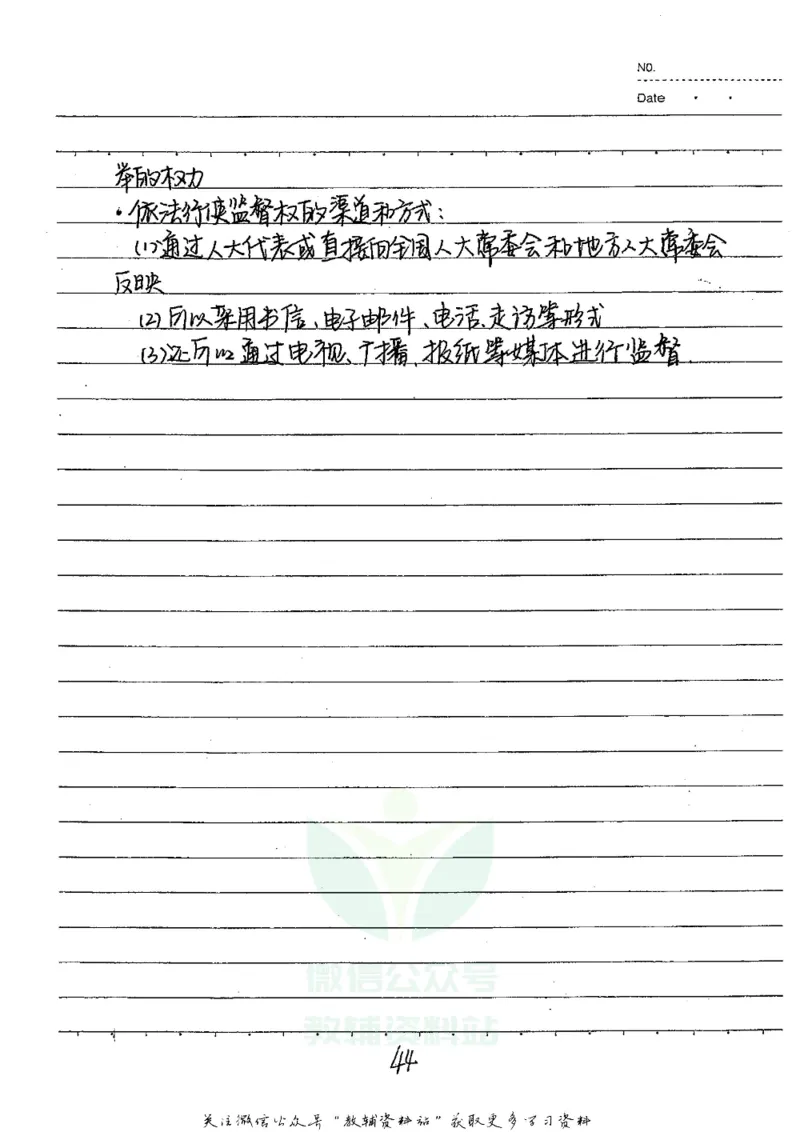 NO.
Date
举的权力
·依法行使监督权的渠道和方式:
(1)通过人大代表或直接向全国人大常委会和地方人大常委会
反映
(2)可以采用书信、电子邮件、电话、走访等形式
(3)还可以通过电视、广播、报纸等媒体进行监督.
微信公众号
教辅资料站
44
关注微信公众号“教辅资料站”获取更多学习资料